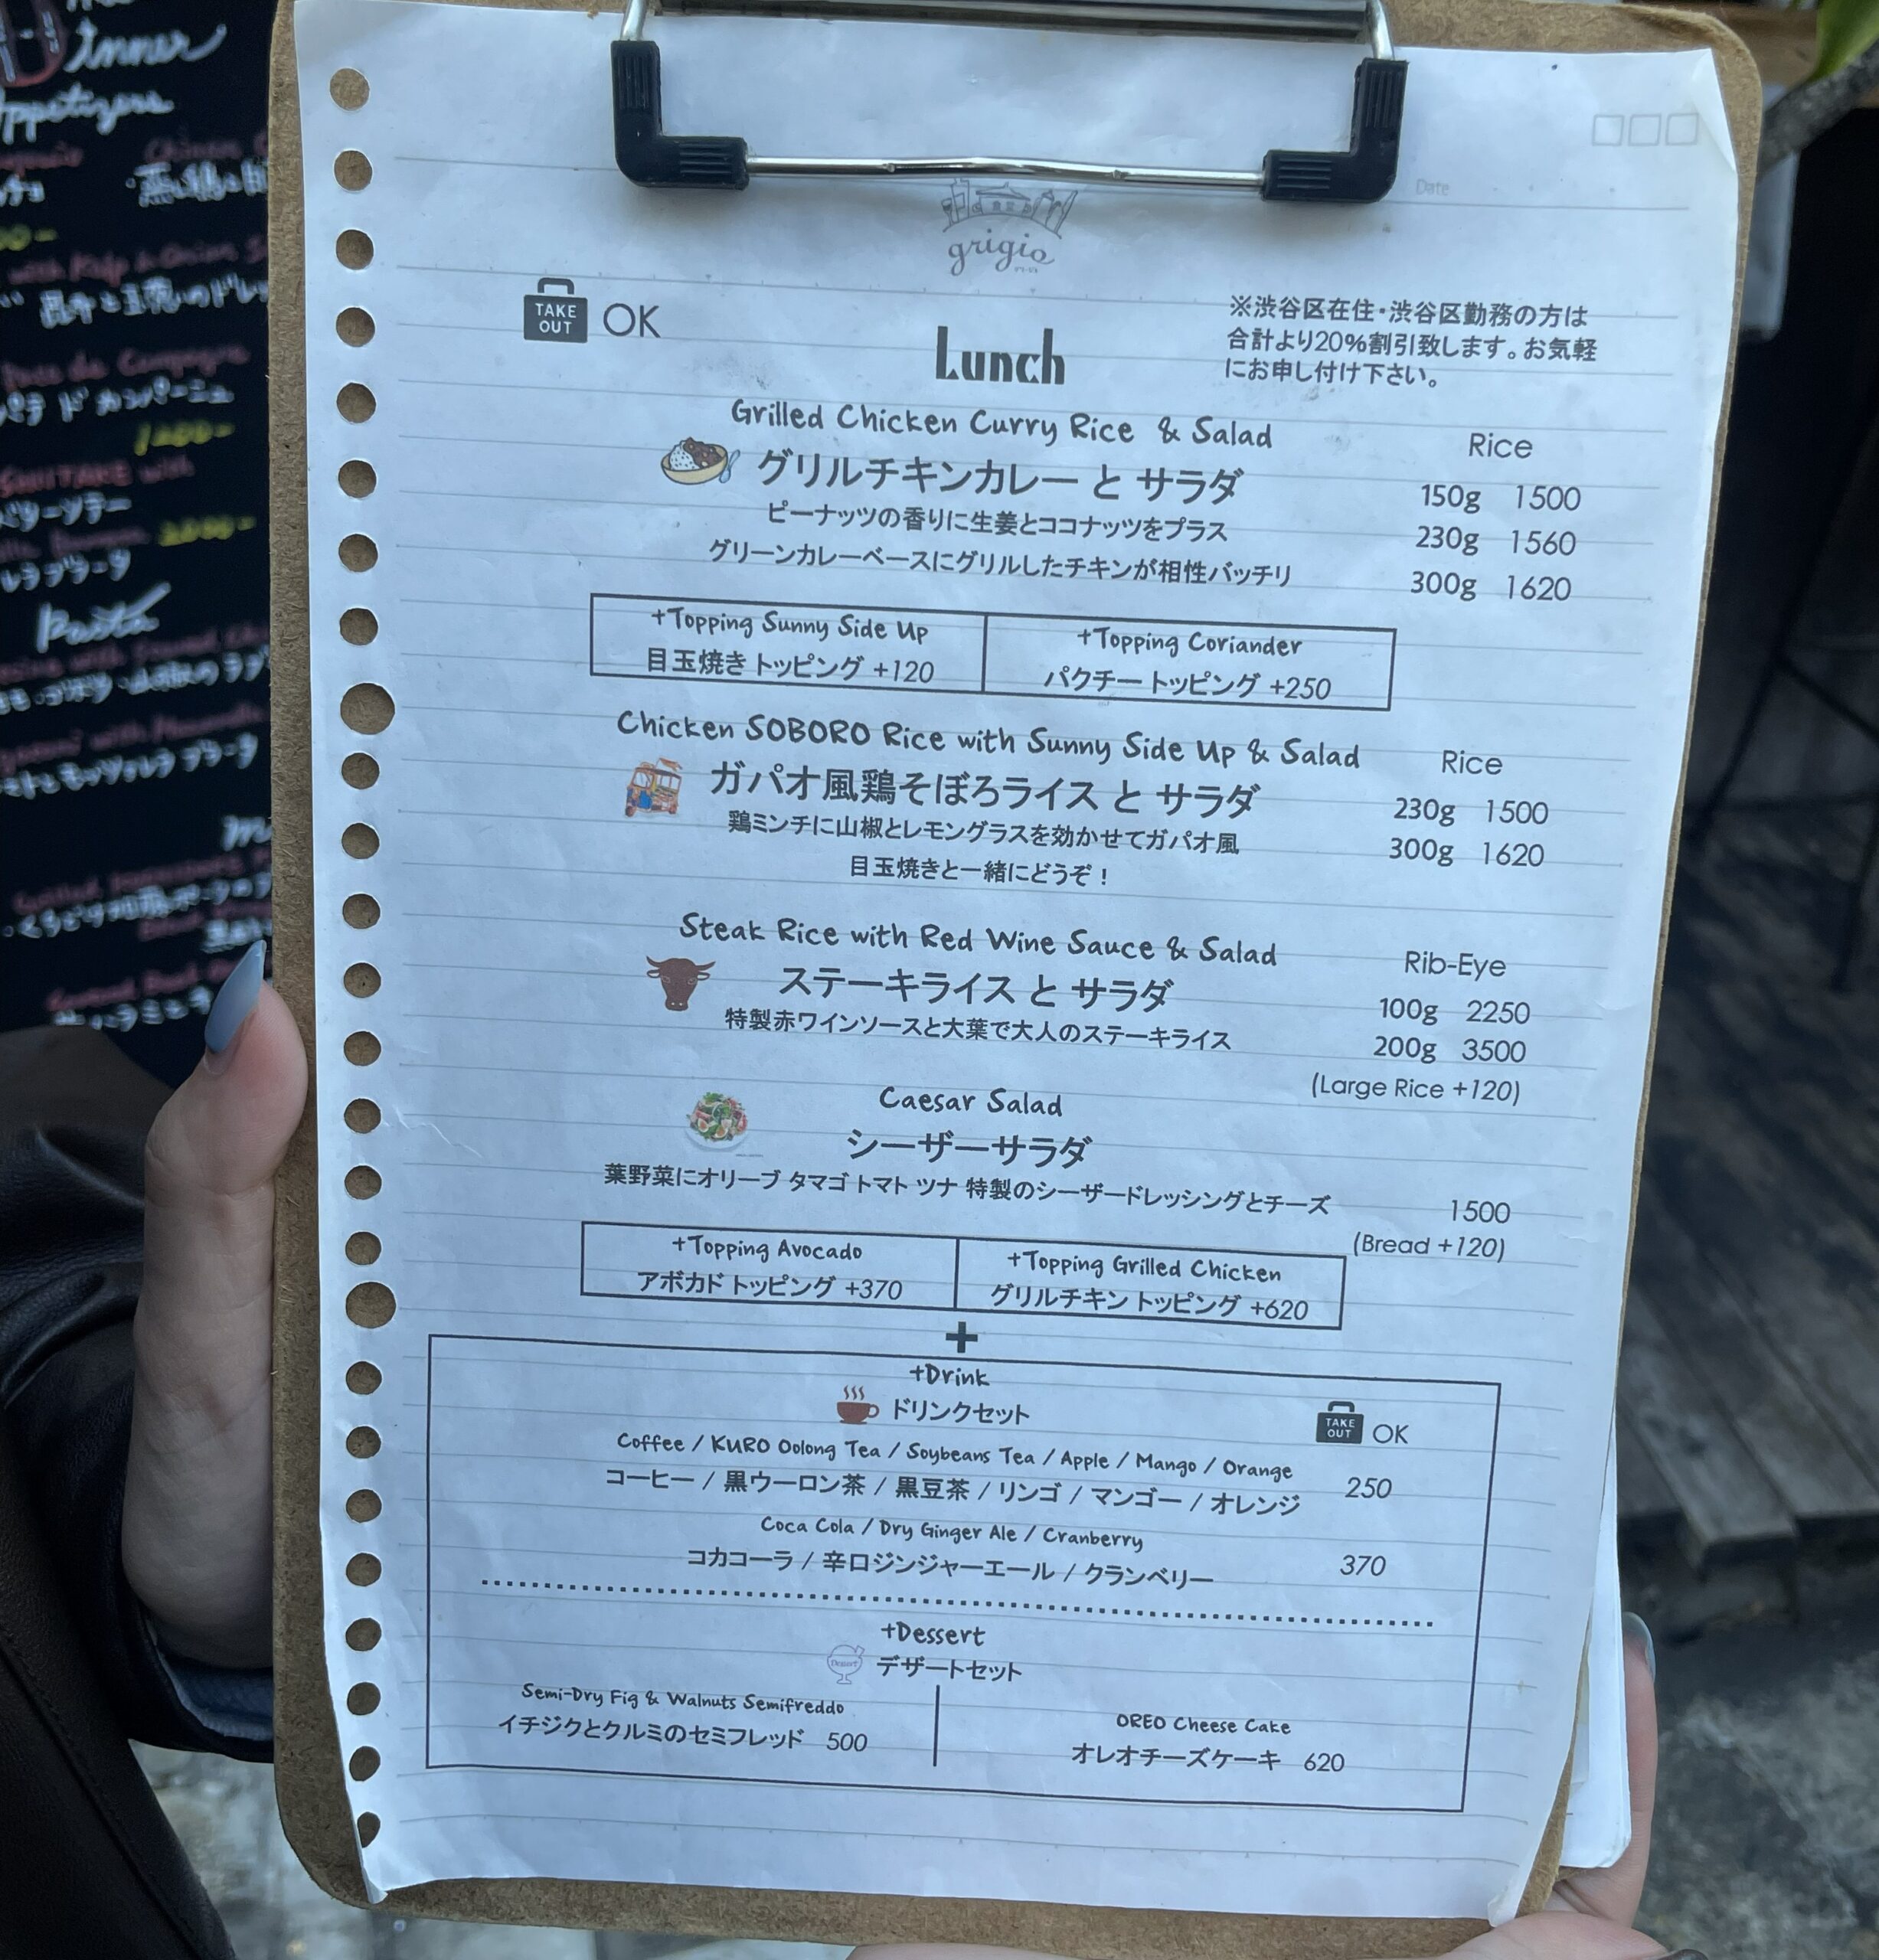 inner
Appetizers
パテ ド カンパーニュ
SHIITAKE with
Pasta
Date
grigio
TAKE OUT OK
※渋谷区在住・渋谷区勤務の方は
合計より20%割引致します。お気軽
にお申し付け下さい。
Lunch
Grilled Chicken Curry Rice & Salad
Rice
グリルチキンカレー と サラダ
150g 1500
ピーナッツの香りに生姜とココナッツをプラス
230g 1560
グリーンカレーベースにグリルしたチキンが相性バッチリ
300g 1620
+Topping Sunny Side Up
目玉焼き トッピング +120
+Topping Coriander
パクチー トッピング +250
Chicken SOBORO Rice with Sunny Side Up & Salad
Rice
ガパオ風鶏そぼろライス と サラダ
230g 1500
鶏ミンチに山椒とレモングラスを効かせてガパオ風
300g 1620
目玉焼きと一緒にどうぞ！
Steak Rice with Red Wine Sauce & Salad
Rib-Eye
ステーキライス と サラダ
100g 2250
特製赤ワインソースと大葉で大人のステーキライス
200g 3500
(Large Rice +120)
Caesar Salad
シーザーサラダ
葉野菜にオリーブ タマゴ トマト ツナ 特製のシーザードレッシングとチーズ
1500
(Bread +120)
+Topping Avocado
アボカド トッピング +370
+Topping Grilled Chicken
グリルチキン トッピング +620
+
+Drink
ドリンクセット
TAKE OUT OK
Coffee / KURO Oolong Tea / Soybeans Tea / Apple / Mango / Orange
コーヒー / 黒ウーロン茶 / 黒豆茶 / リンゴ / マンゴー / オレンジ
250
Coca Cola / Dry Ginger Ale / Cranberry
コカコーラ / 辛口ジンジャーエール / クランベリー
370
+Dessert
Dessert
デザートセット
Semi-Dry Fig & Walnuts Semifreddo
イチジクとクルミのセミフレッド 500
OREO Cheese Cake
オレオチーズケーキ 620